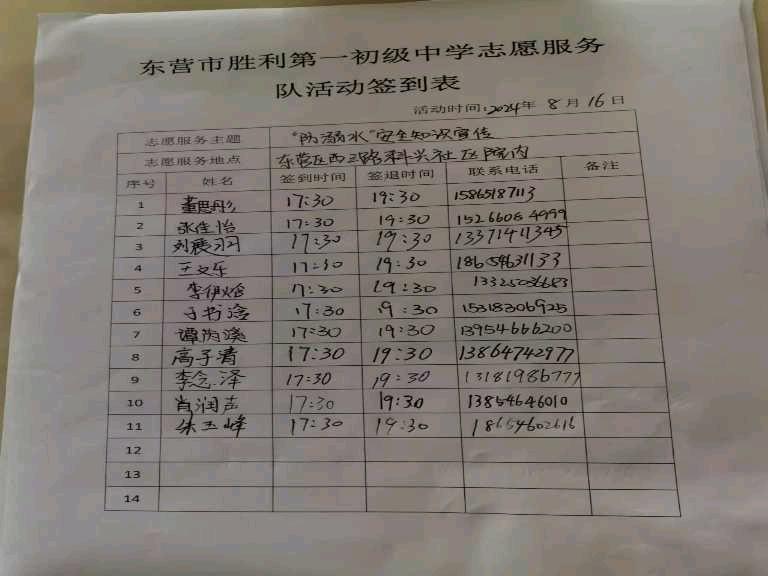 东营市胜利第一初级中学志愿服务
队活动签到表
活动时间:2024年 8月16日
志愿服务主题 "防溺水"安全知识宣传
志愿服务地点 东营区西三路科兴社区院内
序号 姓名 签到时间 签退时间 联系电话 备注
1 董思彤 17:30 19:30 15865187113
2 张佳怡 17:30 19:30 15266084999
3 刘晨羽 17:30 19:30 13371411345
4 王文乐 17:30 19:30 18654631133
5 李伊焓 17:30 19:30 13325036683
6 于书涵 17:30 19:30 15318306925
7 谭 17:30 19:30 13954666200
8 高子清 17:30 19:30 13864742977
9 李念泽 17:30 19:30 13181986777
10 肖润声 17:30 19:30 13854646010
11 朱玉峰 17:30 19:30 18654602616
12
13
14